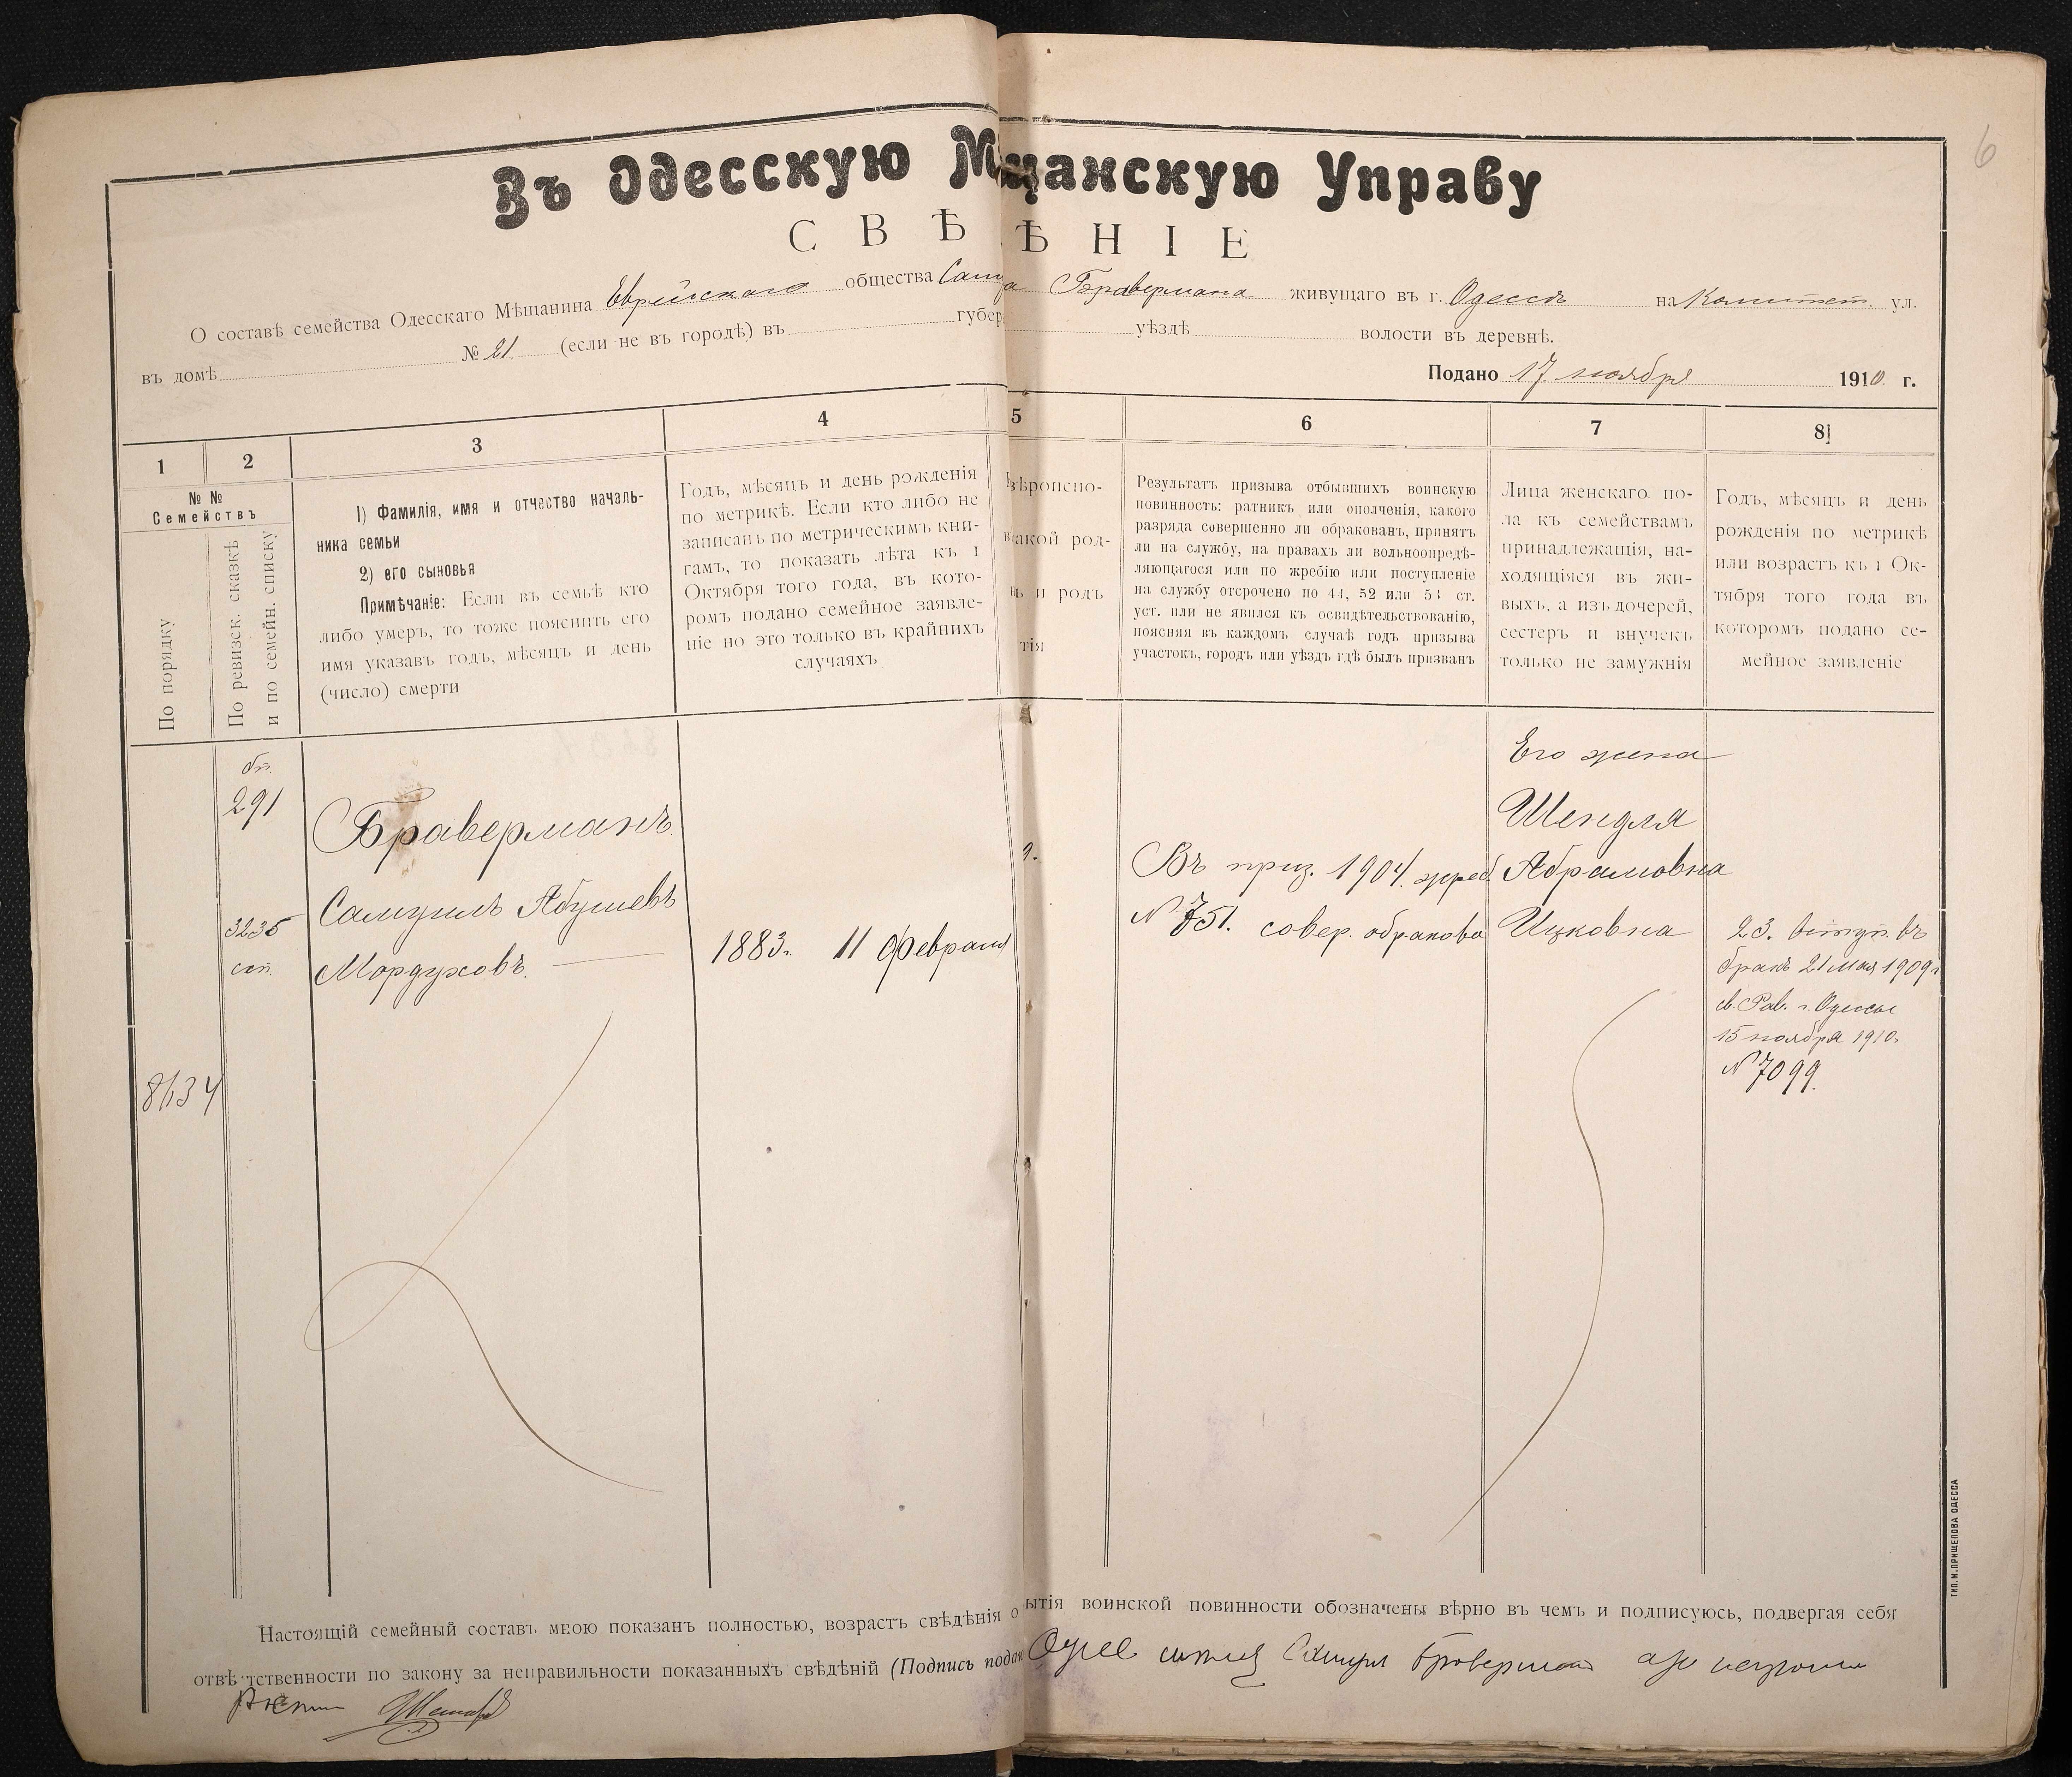 6
Въ Одесскую Мѣщанскую Управу
СВѢДѢНІЕ
О составѣ семейства Одесскаго Мѣщанина Еврейскаго общества Бравермана живущаго въ г. Одессѣ на Комитет. ул.
въ домѣ № 21 (если не въ городѣ) въ губер уѣздѣ волости въ деревнѣ.
Подано 17 ноября 1910 г.
1 2 3 4 5 6 7 8
№№
Семействъ
По порядку
По ревизск. сказкѣ
и по семейн. списку
1) Фамилія, имя и отчество началь-
ника семьи
2) его сыновья
Примѣчаніе: Если въ семьѣ кто
либо умеръ, то тоже пояснить его
имя указавъ годъ, мѣсяцъ и день
(число) смерти
Годъ, мѣсяцъ и день рожденія
по метрикѣ. Если кто либо не
записанъ по метрическимъ кни-
гамъ, то показать лѣта къ 1
Октября того года, въ кото-
ромъ подано семейное заявле-
ніе но это только въ крайнихъ
случаяхъ
вѣроиспо-
акой род-
и родъ
тія
Результатъ призыва отбывшихъ воинскую
повинность: ратникъ или ополченія, какого
разряда совершенно ли обракованъ, принятъ
ли на службу, на правахъ ли вольноопредѣ-
ляющагося или по жребію или поступленіе
на службу отсрочено по 44, 52 или 54 ст.
уст. или не явился къ освидѣтельствованію,
поясняя въ каждомъ случаѣ годъ призыва
участокъ, городъ или уѣздъ гдѣ былъ призванъ
Лица женскаго по-
ла къ семействамъ
принадлежащія, на-
ходящіяся въ жи-
выхъ, а изъ дочерей,
сестеръ и внучекъ
только не замужнія
Годъ, мѣсяцъ и день
рожденія по метрикѣ
или возрастъ къ 1 Ок-
тября того года въ
которомъ подано се-
мейное заявленіе
291
3235
8434
Браверманъ
Самуилъ Абушевъ
Мордуховъ.
1883г. 11 Февраля
Въ приз. 1904. жреб.
№ 751. совер. обракова
Его жена
Шендля
Абрамовна
Ицковна
23. вступ. въ
бракъ 21 Мая 1909г
св. Рав. г. Одессы
15 ноября 1910.
№ 7099.
Настоящій семейный составъ мною показанъ полностью, возрастъ свѣдѣнія о ытія воинской повинности обозначены вѣрно въ чемъ и подписуюсь, подвергая себя
отвѣтственности по закону за неправильности показанныхъ свѣдѣній (Подпись подаю Самуил Браверман
ТИП. М. ПРИЩЕПОВА ОДЕССА